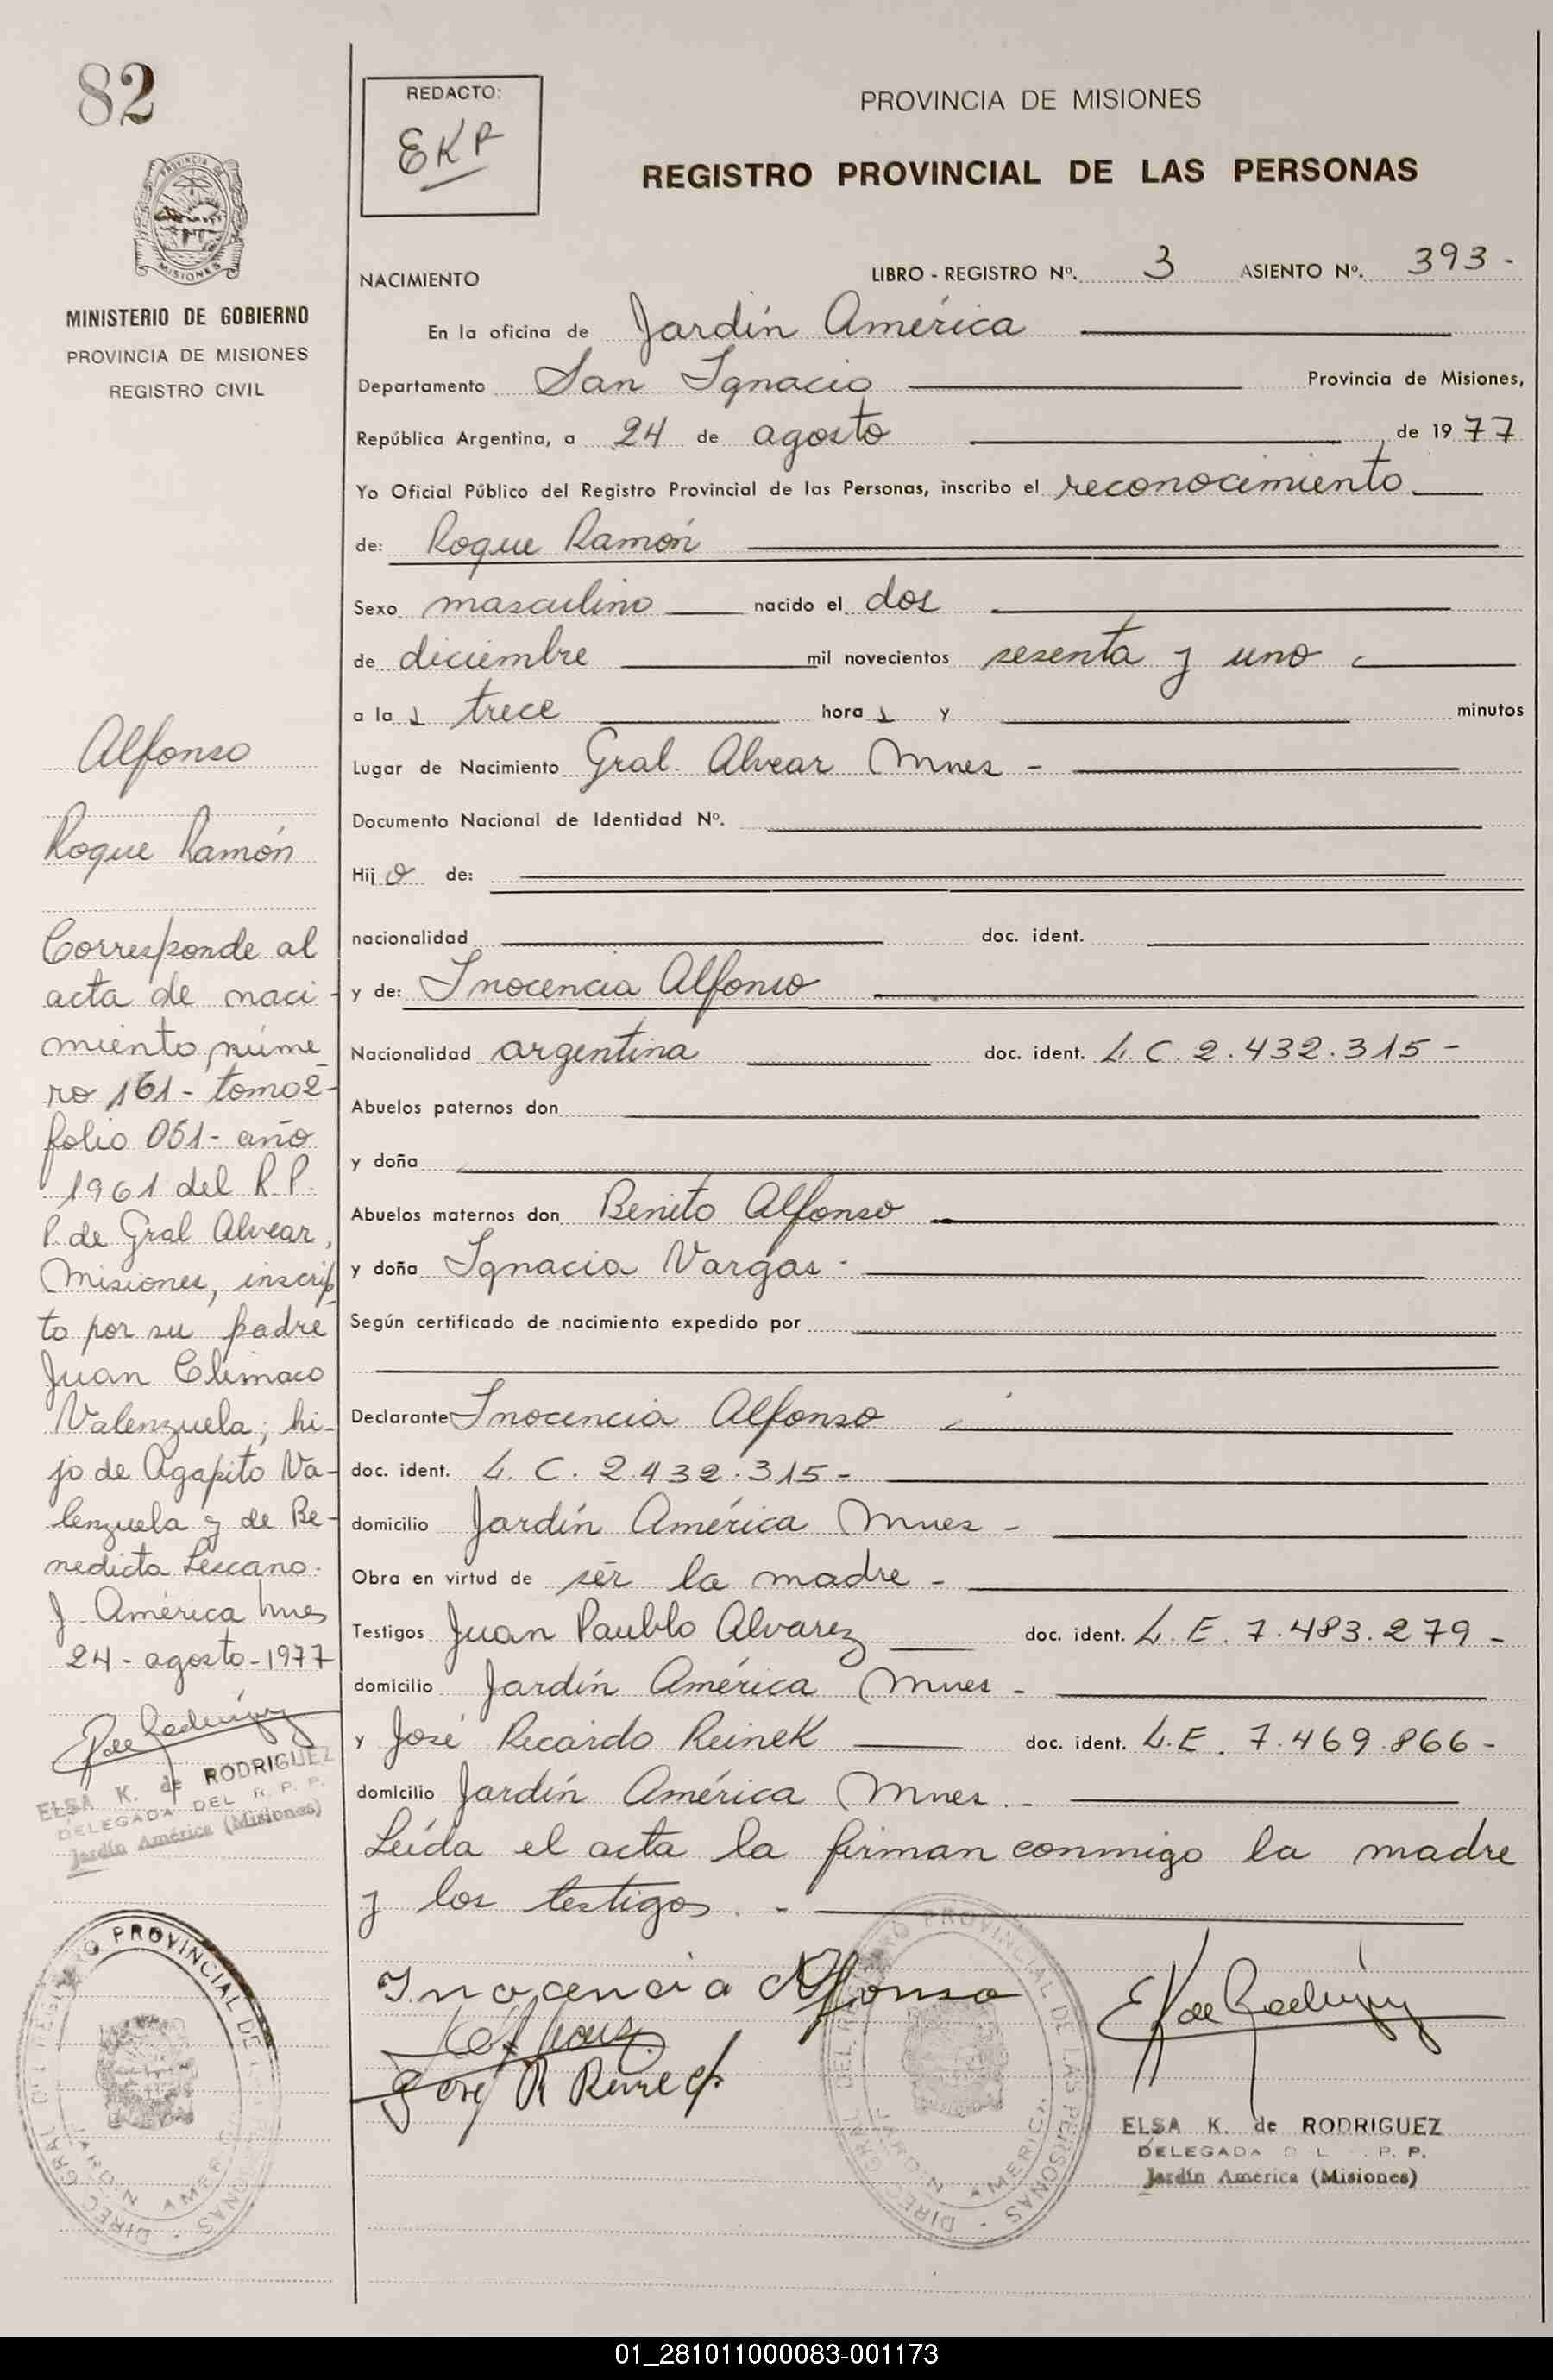 82
REDACTO:
EKR
PROVINCIA DE MISIONES
REGISTRO PROVINCIAL DE LAS PERSONAS
PROVINCIA DE
MISIONES
MINISTERIO DE GOBIERNO
PROVINCIA DE MISIONES
REGISTRO CIVIL
NACIMIENTO LIBRO - REGISTRO Nº. 3 ASIENTO Nº. 393 -
En la oficina de Jardín América
Departamento San Ignacio Provincia de Misiones,
República Argentina, a 24 de agosto de 1977
Yo Oficial Público del Registro Provincial de las Personas, inscribo el reconocimiento
de: Roque Ramón
Sexo masculino nacido el dos
de diciembre mil novecientos sesenta y uno
a la s trece hora s y minutos
Lugar de Nacimiento Gral. Alvear Mnes -
Documento Nacional de Identidad Nº.
Hij o de:
nacionalidad doc. ident.
y de: Inocencia Alfonso
Nacionalidad argentina doc. ident. L. C. 2.432.315 -
Abuelos paternos don
y doña
Abuelos maternos don Benito Alfonso
y doña Ignacia Vargas -
Según certificado de nacimiento expedido por
Declarante Inocencia Alfonso
doc. ident. L. C. 2.432.315 -
domicilio Jardín América Mnes -
Obra en virtud de ser la madre -
Testigos Juan Paublo Alvarez doc. ident. L. E. 7.483.279 -
domicilio Jardín América Mnes -
y José Ricardo Reinek doc. ident. L.E. 7.469.866 -
domicilio Jardín América Mnes. -
Leída el acta la firman conmigo la madre
y los testigos. -
Inocencia Alfonso
José R Reineck
EK de Rodriguez
ELSA K. de RODRIGUEZ
DELEGADA D L P. P.
Jardín América (Misiones)
DIREC. GRAL. DEL REGISTRO PROVINCIAL DE LAS PERSONAS
JARDIN AMERICA
Alfonso
Roque Ramón
Corresponde al
acta de naci -
miento núme
ro 161 - tomo 2 -
folio 061 - año
1961 del R. P.
P. de Gral Alvear,
Misiones, inscrip
to por su padre
Juan Climaco
Valenzuela; hi-
jo de Agapito Va-
lenzuela y de Be-
nedicta Lescano.
J. América Mnes
24 - agosto - 1977
EK de Rodriguez
ELSA K. de RODRIGUEZ
DELEGADA DEL R. P. P.
Jardín América (Misiones)
DIREC. GRAL. DEL REGISTRO PROVINCIAL DE LAS PERSONAS
JARDIN AMERICA
01_281011000083-001173